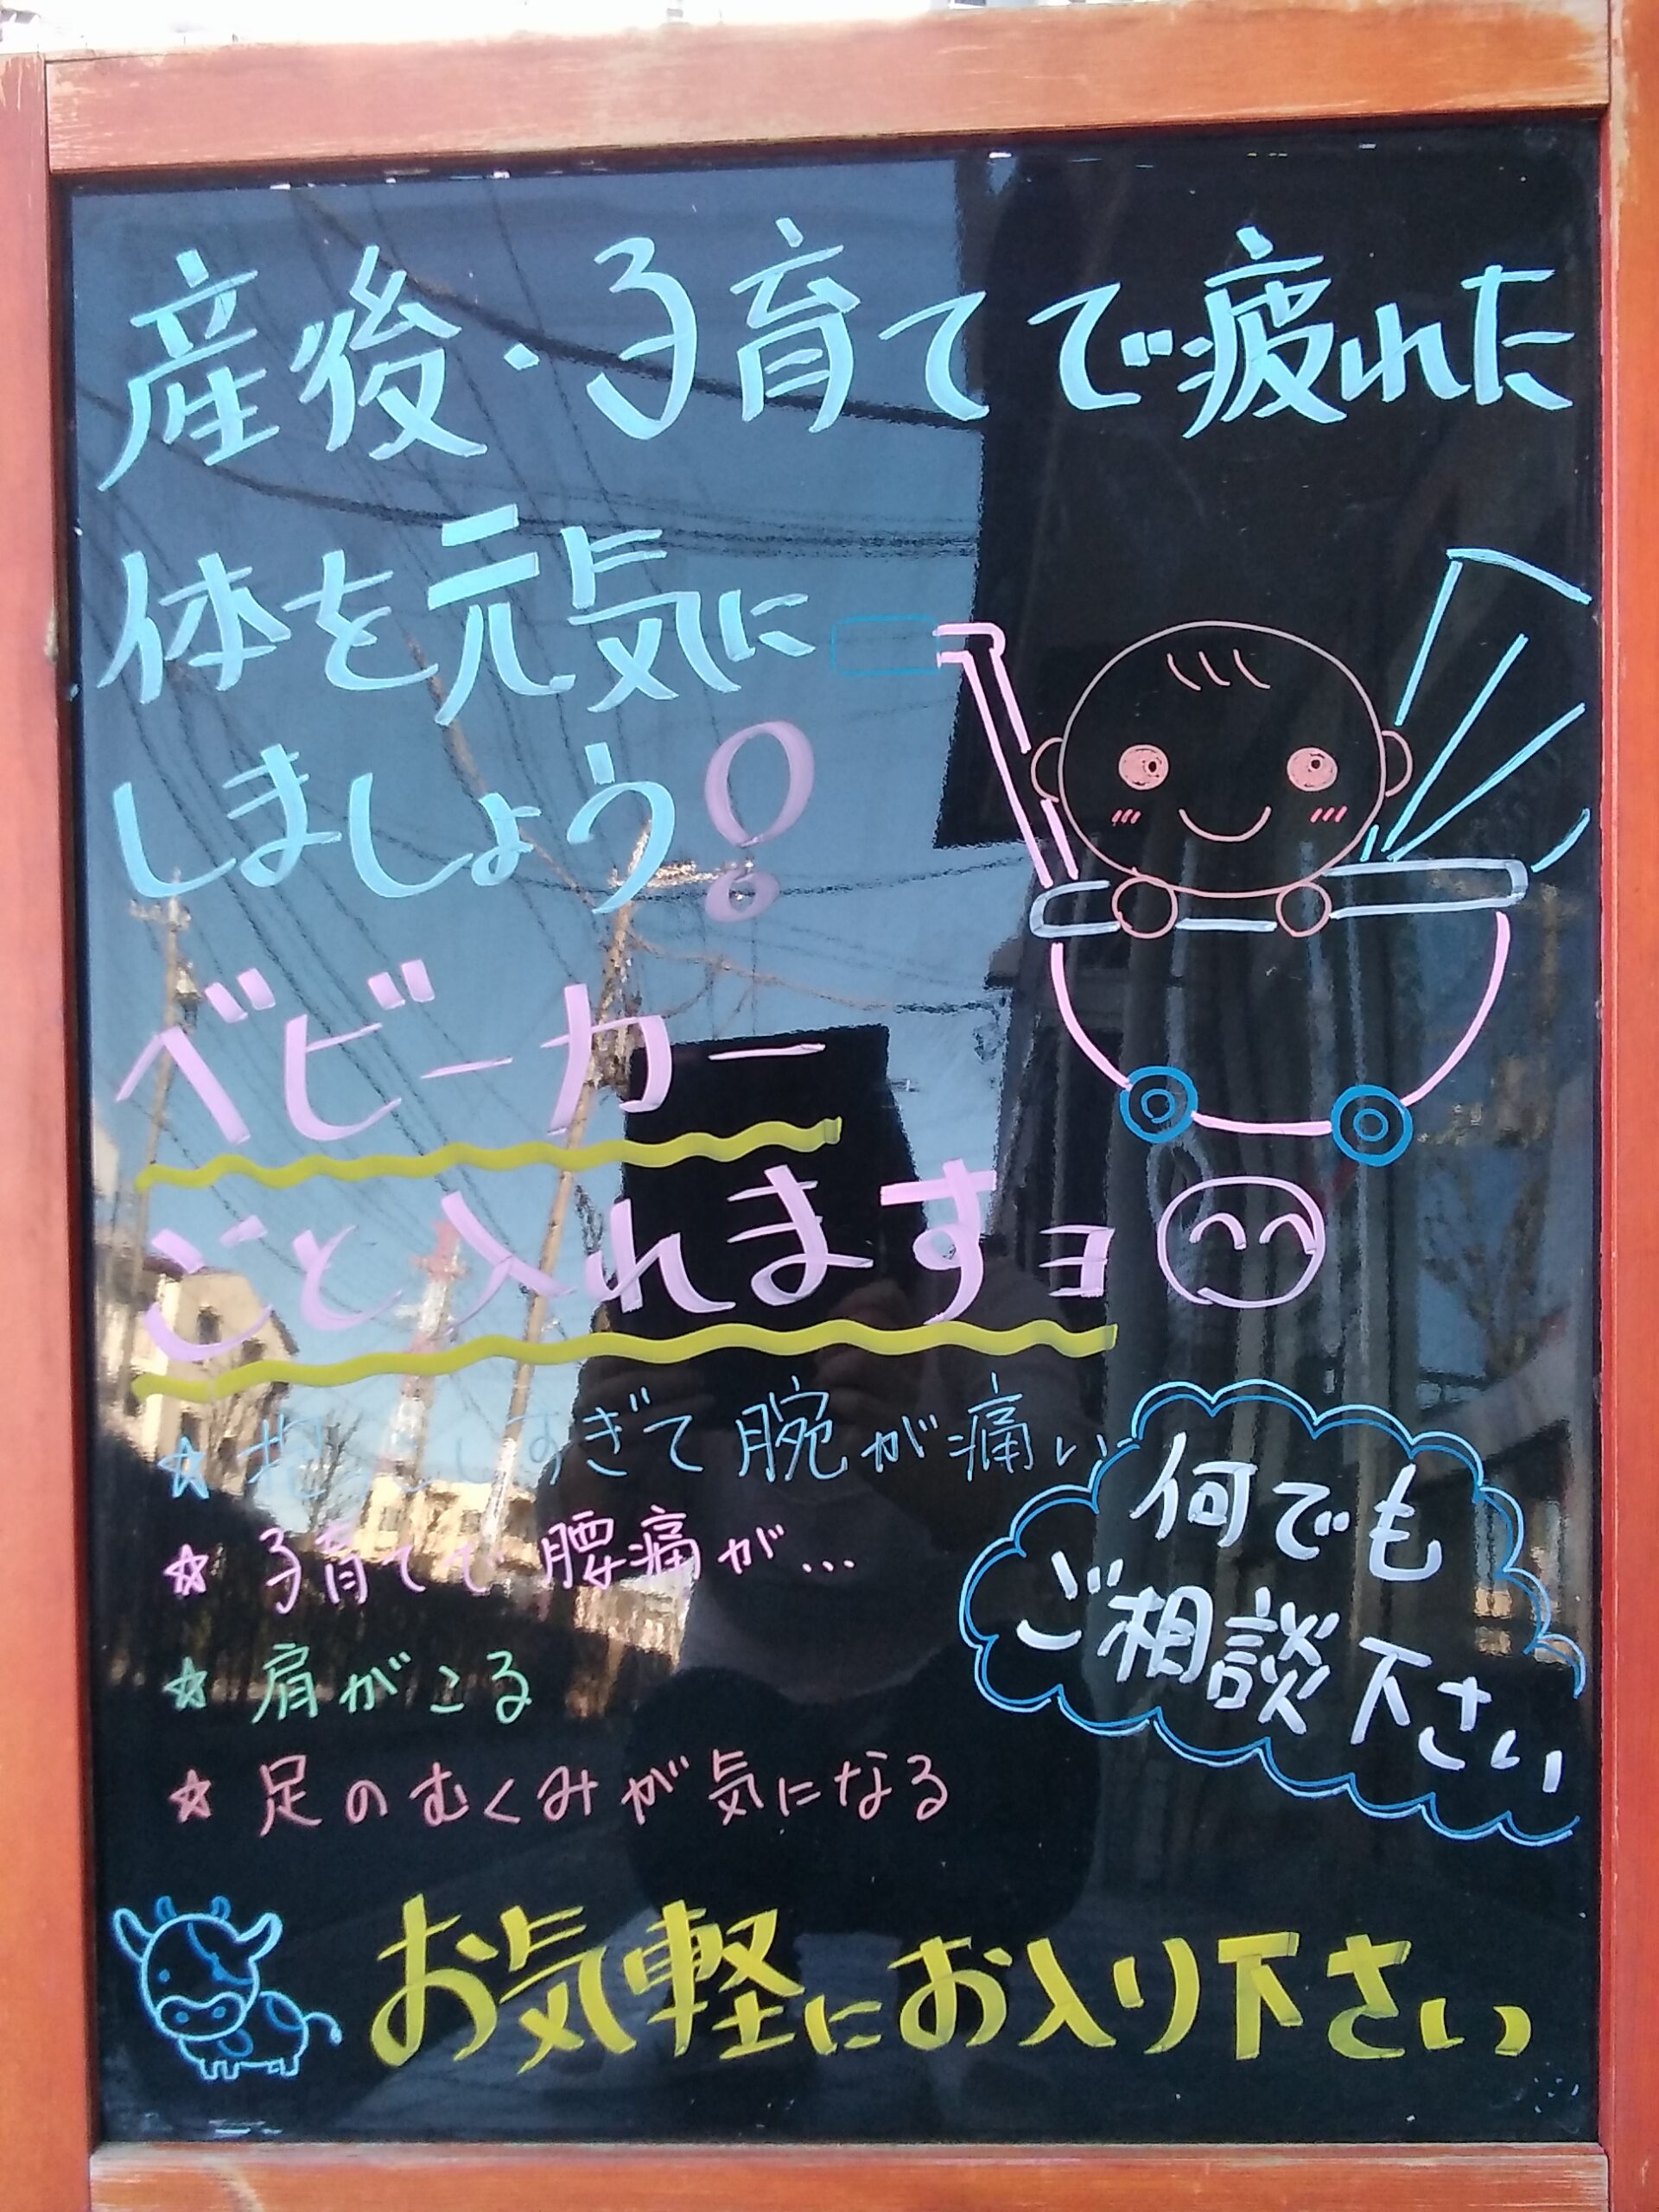 産後・子育てで疲れた
体を元気に
しましょう!
ベビーカー
ごと入れますヨ
☆ 抱っこしすぎて腕が痛い
☆ 子育てで腰痛が…
☆ 肩がこる
☆ 足のむくみが気になる
何でも
ご相談下さい
お気軽にお入り下さい